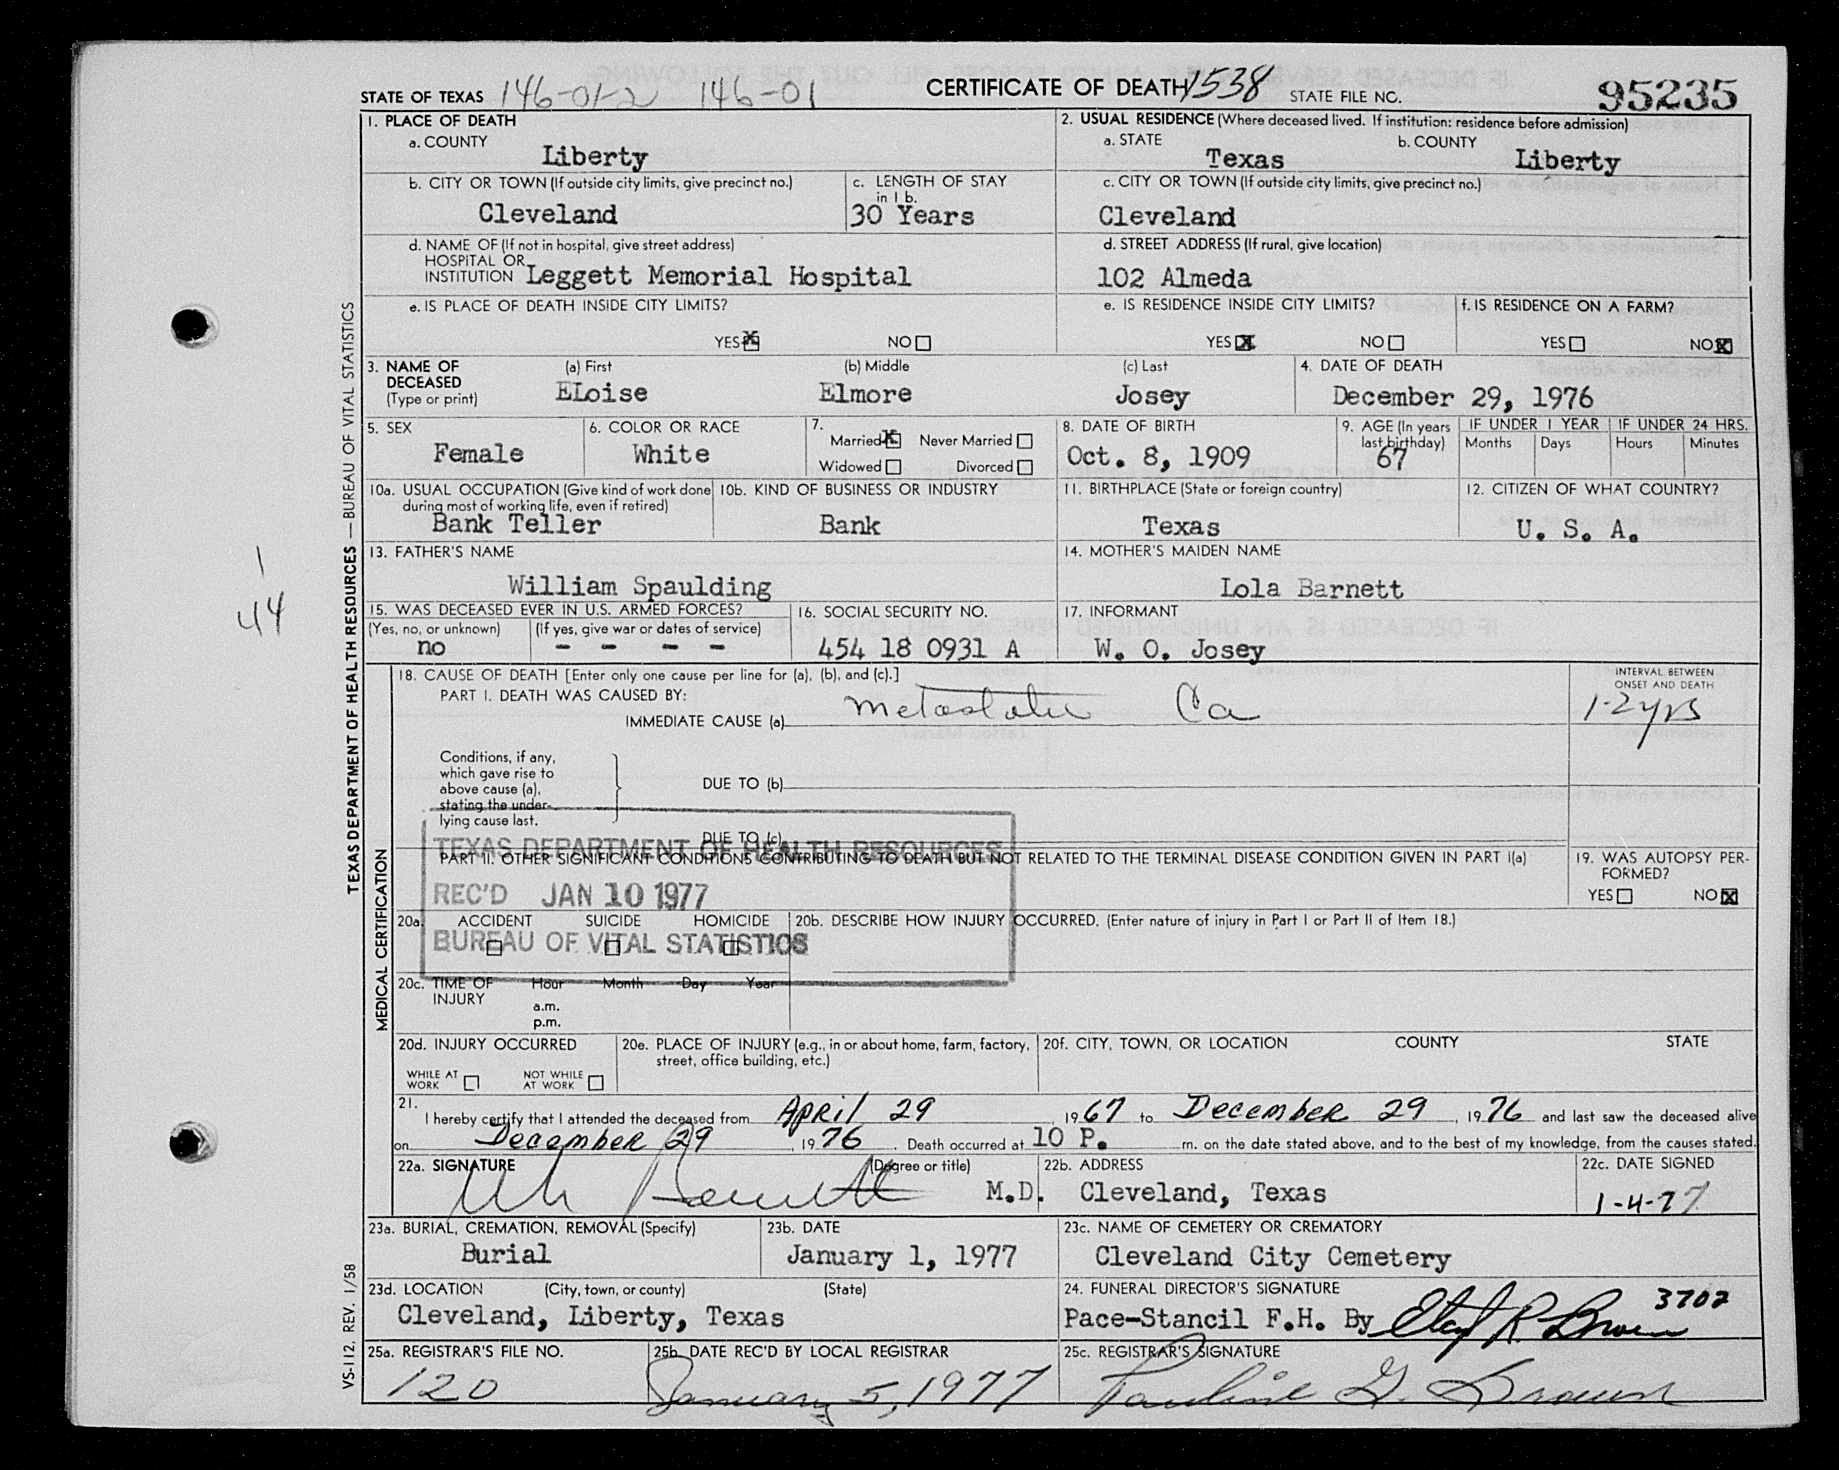 STATE OF TEXAS 146-01-2 146-01 CERTIFICATE OF DEATH 1538 STATE FILE NO. 95235
1. PLACE OF DEATH
a. COUNTY
Liberty
2. USUAL RESIDENCE (Where deceased lived. If institution: residence before admission)
a. STATE b. COUNTY
Texas Liberty
b. CITY OR TOWN (If outside city limits, give precinct no.) c. LENGTH OF STAY
in 1 b.
Cleveland 30 Years
c. CITY OR TOWN (If outside city limits, give precinct no.)
Cleveland
d. NAME OF (If not in hospital, give street address)
HOSPITAL OR
INSTITUTION Leggett Memorial Hospital
d. STREET ADDRESS (If rural, give location)
102 Almeda
e. IS PLACE OF DEATH INSIDE CITY LIMITS?
YES X NO
e. IS RESIDENCE INSIDE CITY LIMITS? f. IS RESIDENCE ON A FARM?
YES X NO YES NO X
3. NAME OF (a) First (b) Middle (c) Last 4. DATE OF DEATH
DECEASED
(Type or print) ELoise Elmore Josey December 29, 1976
5. SEX 6. COLOR OR RACE 7. 8. DATE OF BIRTH 9. AGE (In years IF UNDER 1 YEAR IF UNDER 24 HRS.
Married X Never Married last birthday) Months Days Hours Minutes
Female White Oct. 8, 1909 67
Widowed Divorced
10a. USUAL OCCUPATION (Give kind of work done 10b. KIND OF BUSINESS OR INDUSTRY 11. BIRTHPLACE (State or foreign country) 12. CITIZEN OF WHAT COUNTRY?
during most of working life, even if retired)
Bank Teller Bank Texas U. S. A.
13. FATHER'S NAME 14. MOTHER'S MAIDEN NAME
William Spaulding Lola Barnett
15. WAS DECEASED EVER IN U.S. ARMED FORCES? 16. SOCIAL SECURITY NO. 17. INFORMANT
(Yes, no, or unknown) (If yes, give war or dates of service)
no - - - - 454 18 0931 A W. O. Josey
18. CAUSE OF DEATH [Enter only one cause per line for (a), (b), and (c).] INTERVAL BETWEEN
ONSET AND DEATH
PART I. DEATH WAS CAUSED BY:
IMMEDIATE CAUSE (a) Metastatic Ca 1-2 yrs
Conditions, if any,
which gave rise to
above cause (a),
stating the under-
lying cause last.
DUE TO (b)
DUE TO (c)
TEXAS DEPARTMENT OF HEALTH RESOURCES
PART II. OTHER SIGNIFICANT CONDITIONS CONTRIBUTING TO DEATH BUT NOT RELATED TO THE TERMINAL DISEASE CONDITION GIVEN IN PART I(a) 19. WAS AUTOPSY PER-
FORMED?
YES NO X
REC'D JAN 10 1977
20a. ACCIDENT SUICIDE HOMICIDE 20b. DESCRIBE HOW INJURY OCCURRED. (Enter nature of injury in Part I or Part II of Item 18.)
BUREAU OF VITAL STATISTICS
20c. TIME OF Hour Month Day Year
INJURY
a.m.
p.m.
20d. INJURY OCCURRED 20e. PLACE OF INJURY (e.g., in or about home, farm, factory, 20f. CITY, TOWN, OR LOCATION COUNTY STATE
street, office building, etc.)
WHILE AT NOT WHILE
WORK AT WORK
21.
I hereby certify that I attended the deceased from April 29, 1967 to December 29, 1976 and last saw the deceased alive
on December 29, 1976. Death occurred at 10 P. m. on the date stated above, and to the best of my knowledge, from the causes stated.
22a. SIGNATURE (Degree or title) 22b. ADDRESS 22c. DATE SIGNED
M.D. Cleveland, Texas 1-4-77
23a. BURIAL, CREMATION, REMOVAL (Specify) 23b. DATE 23c. NAME OF CEMETERY OR CREMATORY
Burial January 1, 1977 Cleveland City Cemetery
23d. LOCATION (City, town, or county) (State) 24. FUNERAL DIRECTOR'S SIGNATURE
Cleveland, Liberty, Texas Pace-Stancil F.H. By R. Brown 3702
25a. REGISTRAR'S FILE NO. 25b. DATE REC'D BY LOCAL REGISTRAR 25c. REGISTRAR'S SIGNATURE
120 January 5, 1977 Pauline G. Brown
TEXAS DEPARTMENT OF HEALTH RESOURCES — BUREAU OF VITAL STATISTICS
MEDICAL CERTIFICATION
VS-112, REV. 1/58
1
44